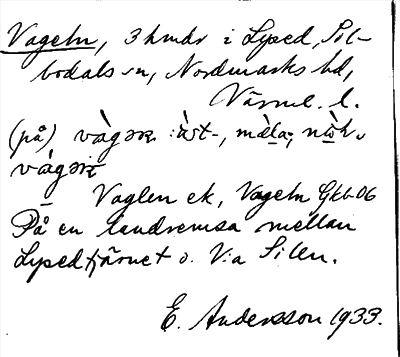 Vageln, 3 hmdr i Lysed, Sil-
bodals sn, Nordmarks hd,
Värml. l.
(på) vàgəɳ :àst-, mèla-, nòk-
vàgəɳ
Vaglen ek, Vageln Gkb-06
På en landremsa mellan
Lysedtjärnet o. V:a Silen.
E. Andersson 1933.